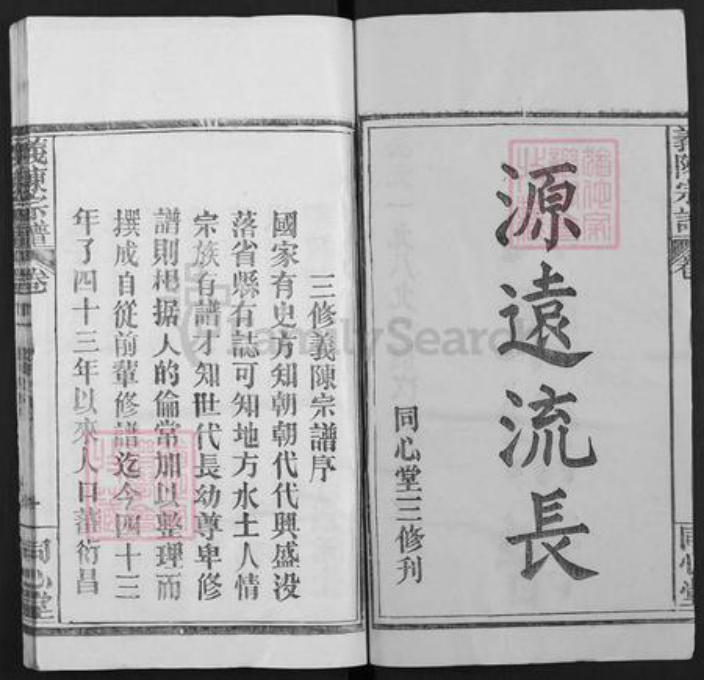 義陳宗譜 卷
源遠流長
同心堂三修刊
同心堂
三修義陳宗譜序
國家有史方知朝朝代代興盛没
落省縣有誌可知地方水土人情
宗族有譜才知世代長幼尊卑修
譜則根据人的倫常加以整理而
撰成自從前輩修譜迄今四十三
年了四十三年以來人口蕃衍昌
義陳宗譜 卷
同心堂
FamilySearch